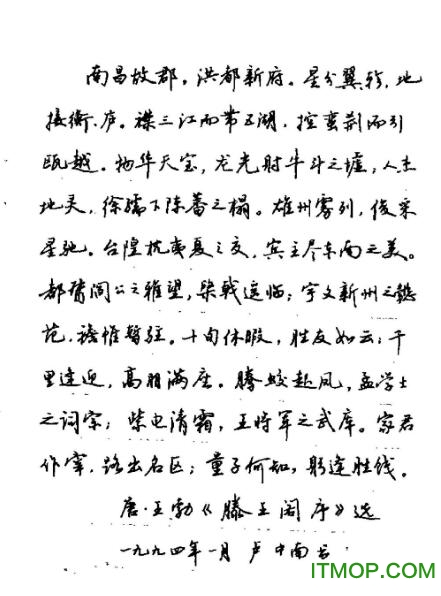 南昌故郡，洪都新府。星分翼轸，地
接衡庐。襟三江而带五湖，控蛮荆而引
瓯越。物华天宝，龙光射牛斗之墟，人杰
地灵，徐孺下陈蕃之榻。雄州雾列，俊采
星驰。台隍枕夷夏之交，宾主尽东南之美。
都督阎公之雅望，棨戟遥临；宇文新州之懿
范，襜帷暂驻。十旬休暇，胜友如云；千
里逢迎，高朋满座。腾蛟起凤，孟学士
之词宗；紫电清霜，王将军之武库。家君
作宰，路出名区；童子何知，躬逢胜饯。
唐·王勃《滕王阁序》选
一九九四年一月 卢中南书
ITMOP.com